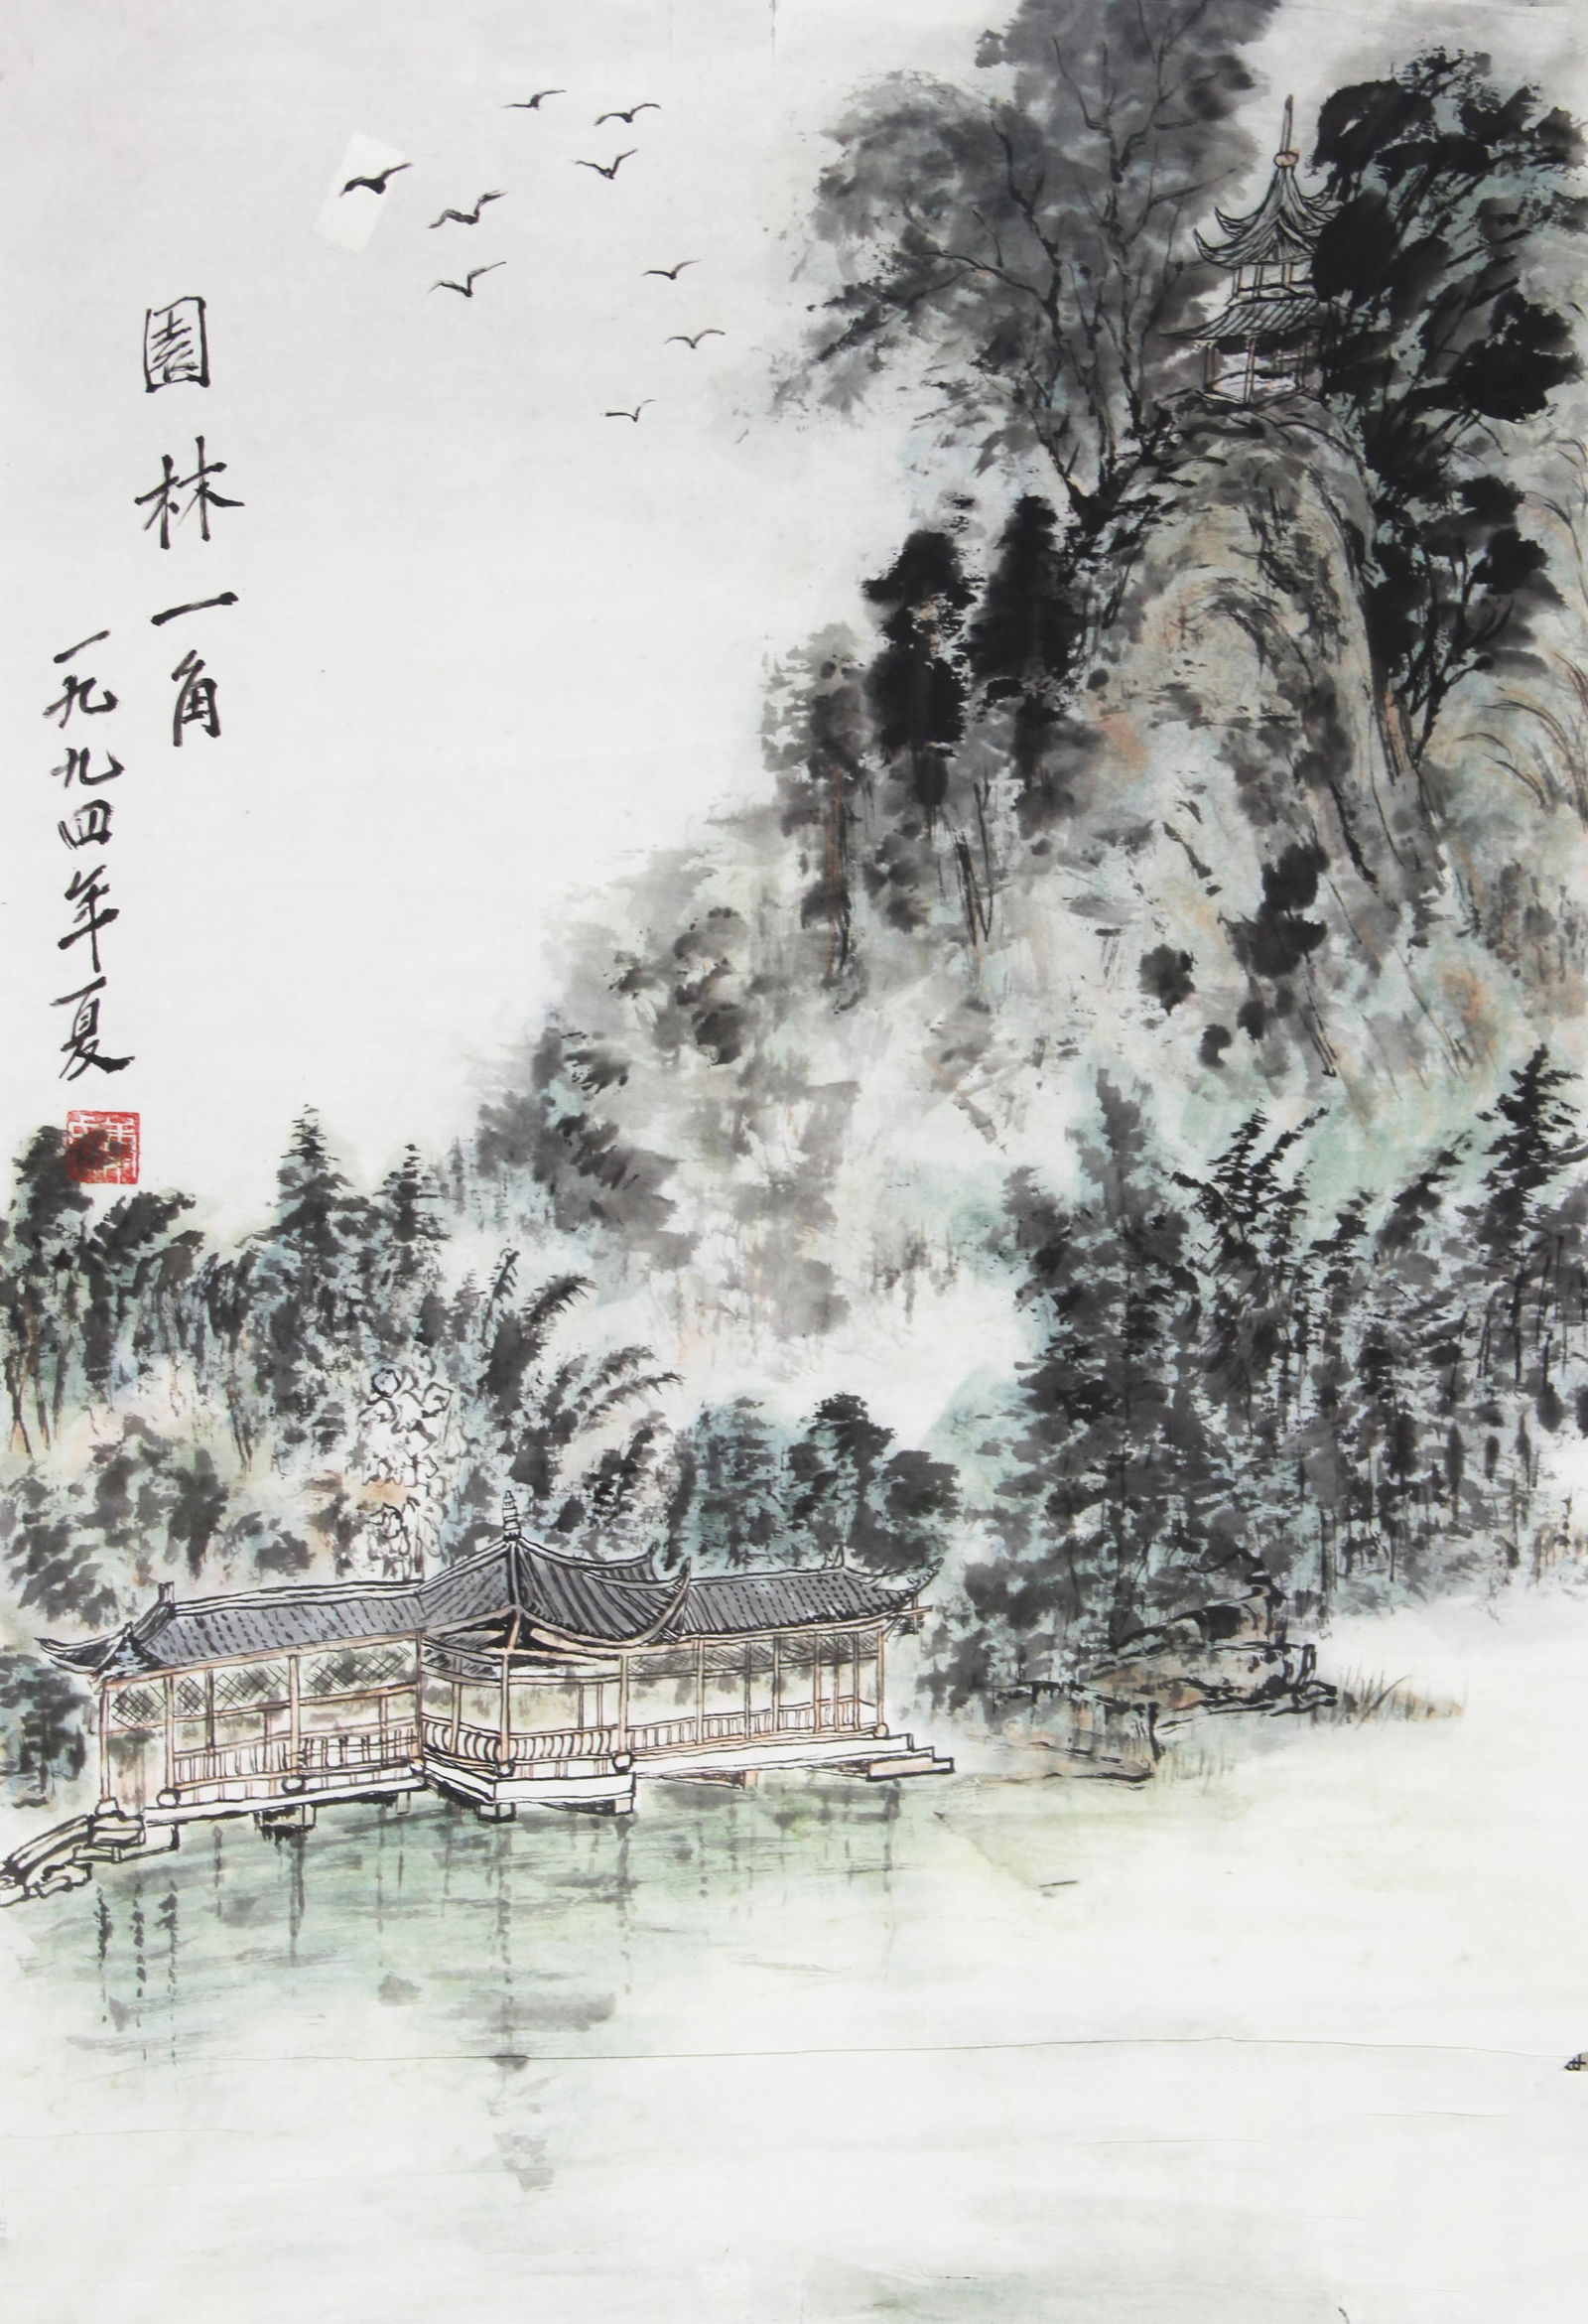 園林一角
一九九四年夏